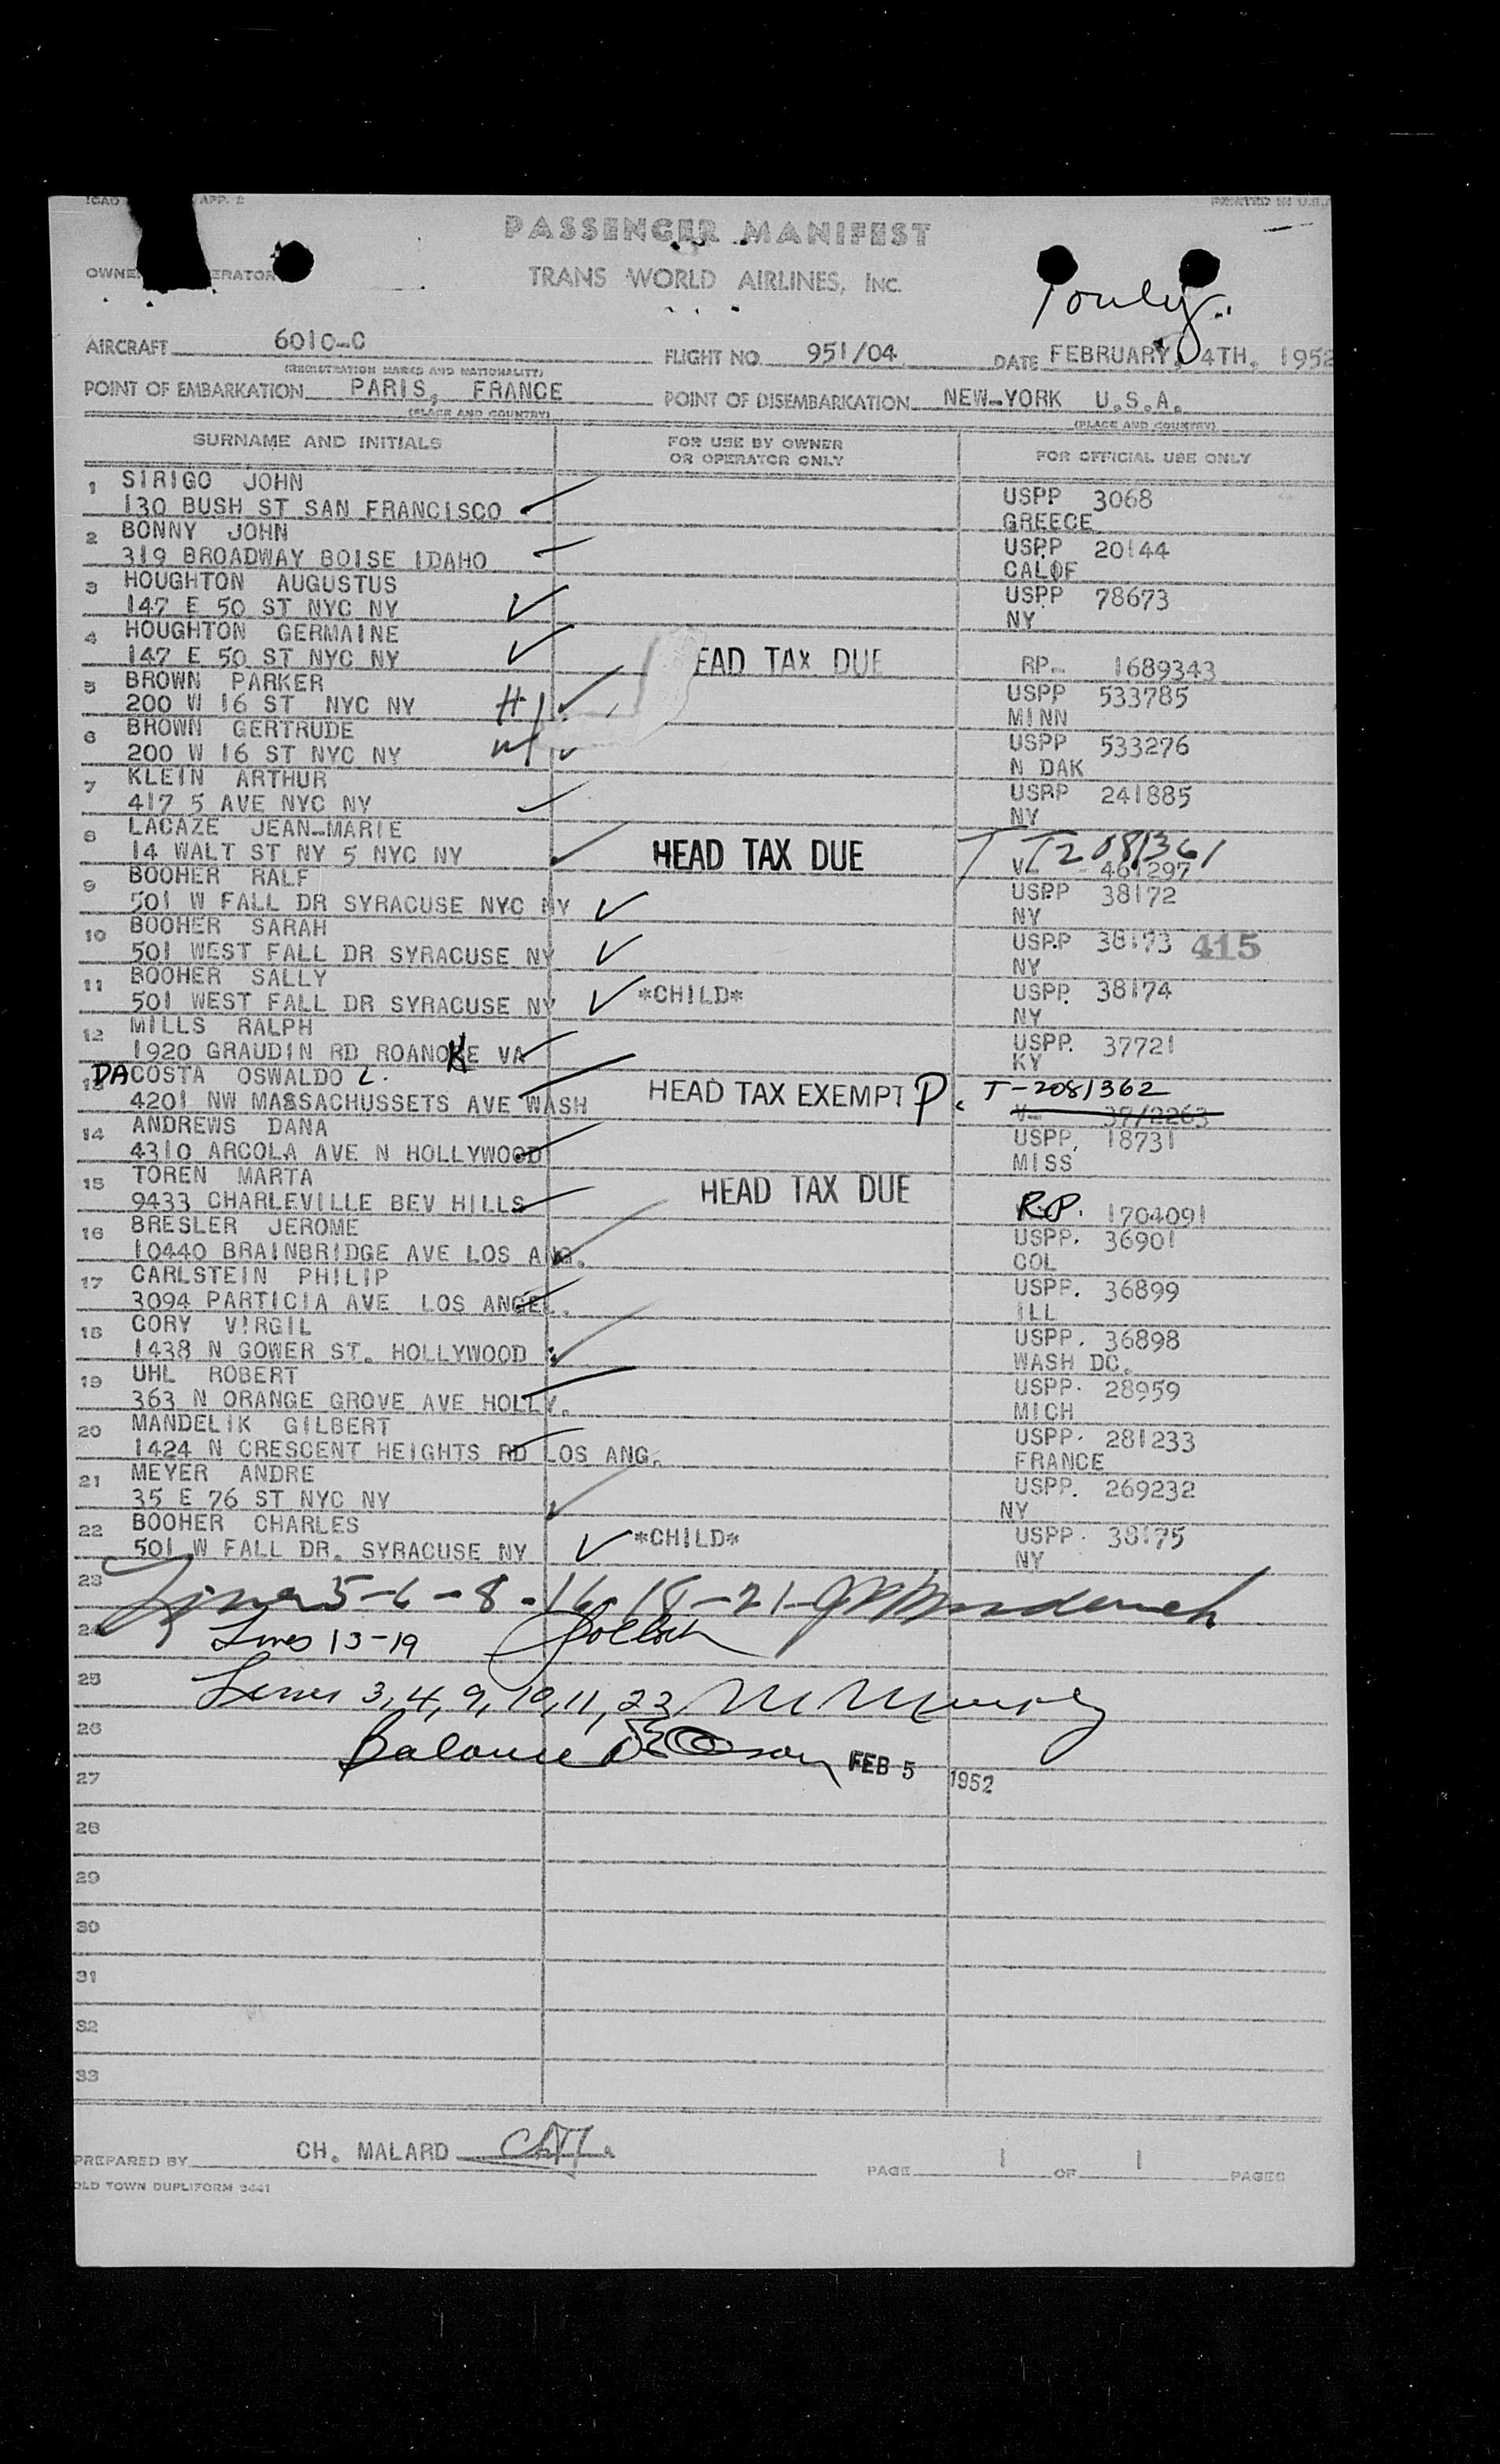 ICAO APP. 2 PRINTED IN U.S.A
PASSENGER MANIFEST
OWNE ERATOR TRANS WORLD AIRLINES, INC.
1 only.
AIRCRAFT 6010-C FLIGHT NO. 951/04 DATE FEBRUARY, 4TH, 1952
(REGISTRATION MARKS AND NATIONALITY)
POINT OF EMBARKATION PARIS, FRANCE POINT OF DISEMBARKATION NEW-YORK U.S.A.
(PLACE AND COUNTRY) (PLACE AND COUNTRY)
SURNAME AND INITIALS FOR USE BY OWNER OR OPERATOR ONLY FOR OFFICIAL USE ONLY
1 SIRIGO JOHN USPP 3068
130 BUSH ST SAN FRANCISCO ✓ GREECE
2 BONNY JOHN USPP 20144
319 BROADWAY BOISE IDAHO ✓ CALOF
3 HOUGHTON AUGUSTUS USPP 78673
147 E 50 ST NYC NY ✓ NY
4 HOUGHTON GERMAINE
147 E 50 ST NYC NY ✓ EAD TAX DUE RP- 1689343
5 BROWN PARKER USPP 533785
200 W 16 ST NYC NY H ✓ MINN
6 BROWN GERTRUDE USPP 533276
200 W 16 ST NYC NY W ✓ N DAK
7 KLEIN ARTHUR USPP 241885
417 5 AVE NYC NY ✓ NY
8 LACAZE JEAN-MARIE T T2081361
14 WALT ST NY 5 NYC NY ✓ HEAD TAX DUE V- 461297
9 BOOHER RALF USPP 38172
501 W FALL DR SYRACUSE NYC NY ✓ NY
10 BOOHER SARAH USPP 38173 415
501 WEST FALL DR SYRACUSE NY ✓ NY
11 BOOHER SALLY USPP. 38174
501 WEST FALL DR SYRACUSE NY ✓ *CHILD* NY
12 MILLS RALPH USPP. 37721
1920 GRAUDIN RD ROANOKE VA ✓ KY
13 DACOSTA OSWALDO L. HEAD TAX EXEMPT P. T-2081362
4201 NW MASSACHUSSETS AVE WASH V- 37/2263
14 ANDREWS DANA USPP. 18731
4310 ARCOLA AVE N HOLLYWOOD MISS
15 TOREN MARTA HEAD TAX DUE
9433 CHARLEVILLE BEV HILLS R.P. 1704091
16 BRESLER JEROME USPP. 36901
10440 BRAINBRIDGE AVE LOS ANG. COL
17 CARLSTEIN PHILIP USPP. 36899
3094 PARTICIA AVE LOS ANGEL. ILL
18 CORY VIRGIL USPP. 36898
1438 N GOWER ST. HOLLYWOOD ✓ WASH DC.
19 UHL ROBERT USPP. 28959
363 N ORANGE GROVE AVE HOLLY. MICH
20 MANDELIK GILBERT USPP. 281233
1424 N CRESCENT HEIGHTS RD LOS ANG. FRANCE
21 MEYER ANDRE USPP. 269232
35 E 76 ST NYC NY ✓ NY
22 BOOHER CHARLES USPP. 38175
501 W FALL DR. SYRACUSE NY ✓ *CHILD* NY
23 Lines 5-6-8-16-18-21-
24 Lines 13-19
25 Lines 3,4,9,10,11,22, M Murphy
26 Balance
27 FEB 5 1952
28
29
30
31
32
33
PREPARED BY CH. MALARD PAGE 1 OF 1 PAGES
OLD TOWN DUPLIFORM 9441